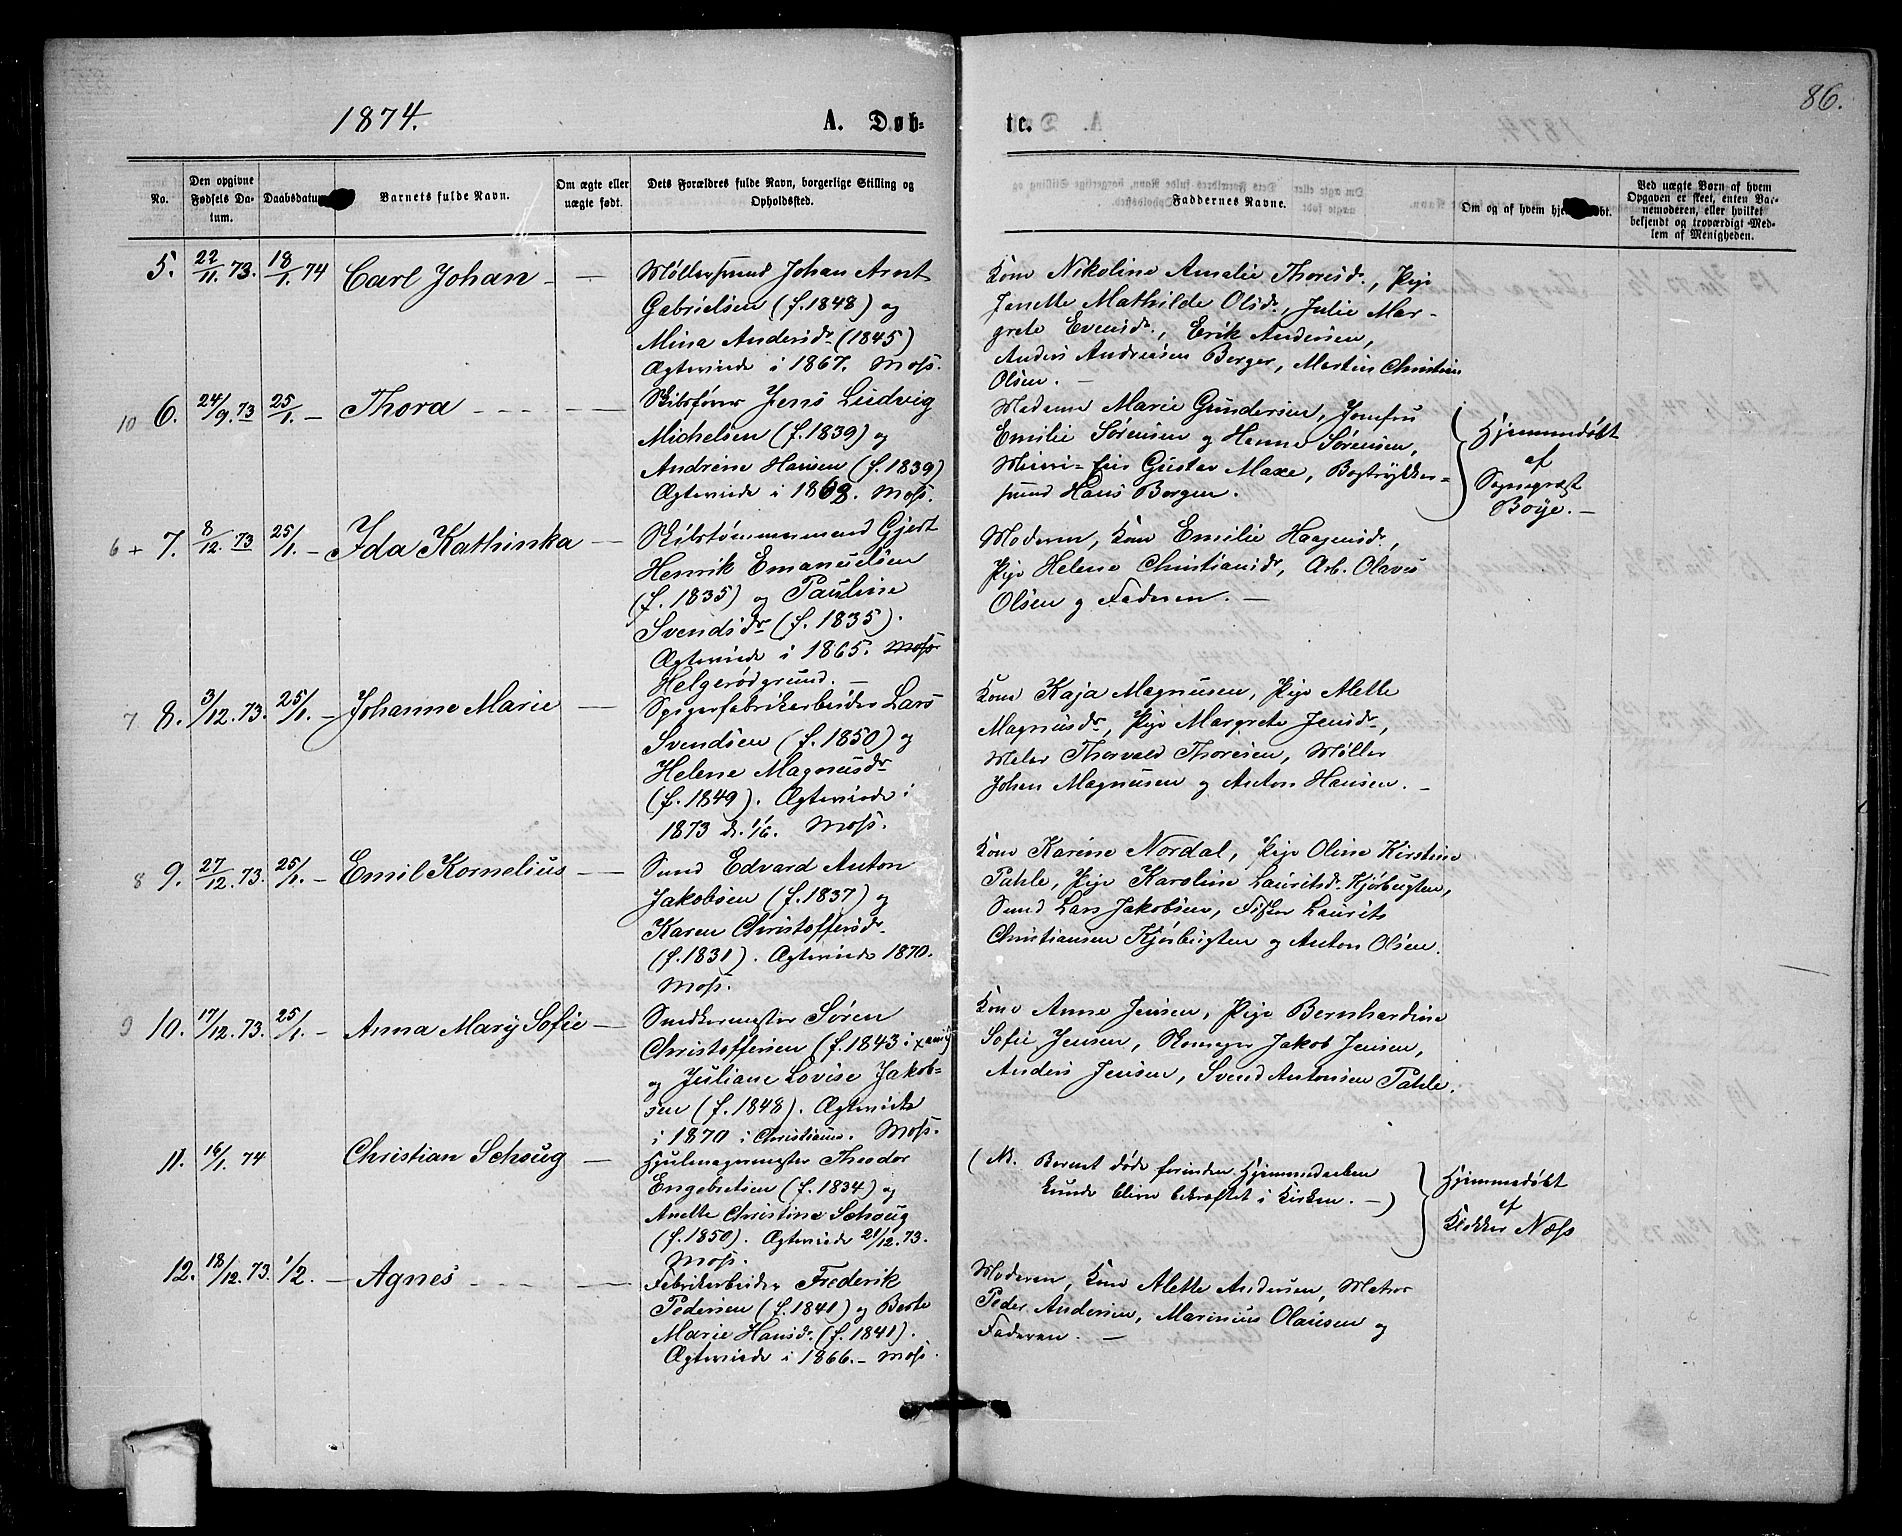 1874.
A. Døb-
te.
86.
No.
Den opgivne Fødsels Da-tum.
Daabsdatum
Barnets fulde Navn.
Om ægte eller uægte født.
Dets Forældres fulde Navn, borgerlige Stilling og Opholdssted.
Faddernes Navne.
Om og af hvem hje bt.
Ved uægte Børn af hvem Opgaven er skeet, enten Bar-nemoderen, eller hvilket bekjendt og troværdigt Med-lem af Menigheden.
5. 22/11. 73. 18/1. 74 Carl Johan — —
Møllersvend Johan Arnt
Gabrielsen (f. 1848) og
Mina Andersdr (1845)
Ægteviede i 1867. Moss.
Kone Nikoline Amalie Thoresdr., Pige
Janette Mathilde Olsdr., Julie Mar-
grete Evensdr., Erik Andersen,
Anders Andreasen Berger, Martin Christian
Olsen. —
10 6. 24/9. 73 25/1. — Thora — — — —
Skibsfører Jens Ludvig
Michelsen (f. 1839) og
Andrine Hansen (f. 1839)
Ægteviede i 1868. Moss.
Madame Marie Gundersen, Jomfru
Emilie Sørensen og Hanna Sørensen,
Gustav Maxe, Bogtrykker-
svend Hans Borgen.
Hjemmedøbt
af
Sognepræst
Boye. —
6 + 7. 8/12. 73 25/1. — Ida Kathinka —
Skibstømmermand Gjert
Henrik Emanuelsen
(f. 1835) og Pauline
Svendsdr (f. 1835).
Ægteviede i 1865. Moss
Helgerødgrund. —
Moderen, Kone Emilie Haagensdr.,
Pige Helene Christiansdr, Arb. Olaves
Olsen og Faderen. —
7 8. 3/12. 73. 25/1. — Johanne Marie —
Spigerfabrikarbeider Lars
Svendsen (f. 1850) og
Helene Magnusdr
(f. 1849). Ægteviede i
1873 d. 1/6. Moss.
Kone Kaja Magnusen, Pige Alette
Magnusdr, Pige Margrete Jensdr,
Maler Thorvald Thoresen, Møller
Johan Magnusen og Anton Hansen. —
8 9. 27/12. 73. 25/1. — Emil Kornelius —
Smed Edvard Anton
Jakobsen (f. 1837) og
Karen Christoffersdr
(f. 1831). Ægteviede 1870.
Moss.
Kone Karine Nordal, Pige Oline Kirstine
Pahle, Pige Karoline Lauritsdr. Kjørbugten,
Smed Lars Jakobsen, Fisker Laurits
Christiansen Kjørbugten og Anton Olsen.
9 10. 17/12. 73. 25/1. — Anna Mary Sofie —
Snedkermester Søren
Christoffersen (f. 1843 i
og Juliane Lovise Jakob-
sen (f. 1848). Ægteviede
i 1870 i Christiania. Moss.
Kone Anne Jensen, Pige Bernhardine
Sofie Jensen, Skomager Jakob Jensen,
Anders Jensen, Svend Antonsen Pahle.
11. 16/1. 74 Christian Schoug —
Hjulmagermester Theodor
Engebretsen (f. 1834) og
Anette Christine Schoug
(f. 1850). Ægteviede 21/12. 73.
Moss.
(NB. Barnet døde forinden Hjemmedaaben
kunde blive bekræftet i Kirken. —)
Hjemmedøbt
af
Klokker Næss
12. 18/12. 73. 1/2. — Agnes — — — —
Fabrikarbeider Frederik
Pedersen (f. 1841) og Berte
Marie Hansdr. (f. 1841).
Ægteviede i 1866. — Moss.
Moderen, Kone Alette Andersen, Matros
Peder Andersen, Marinius Olausen og
Faderen. —